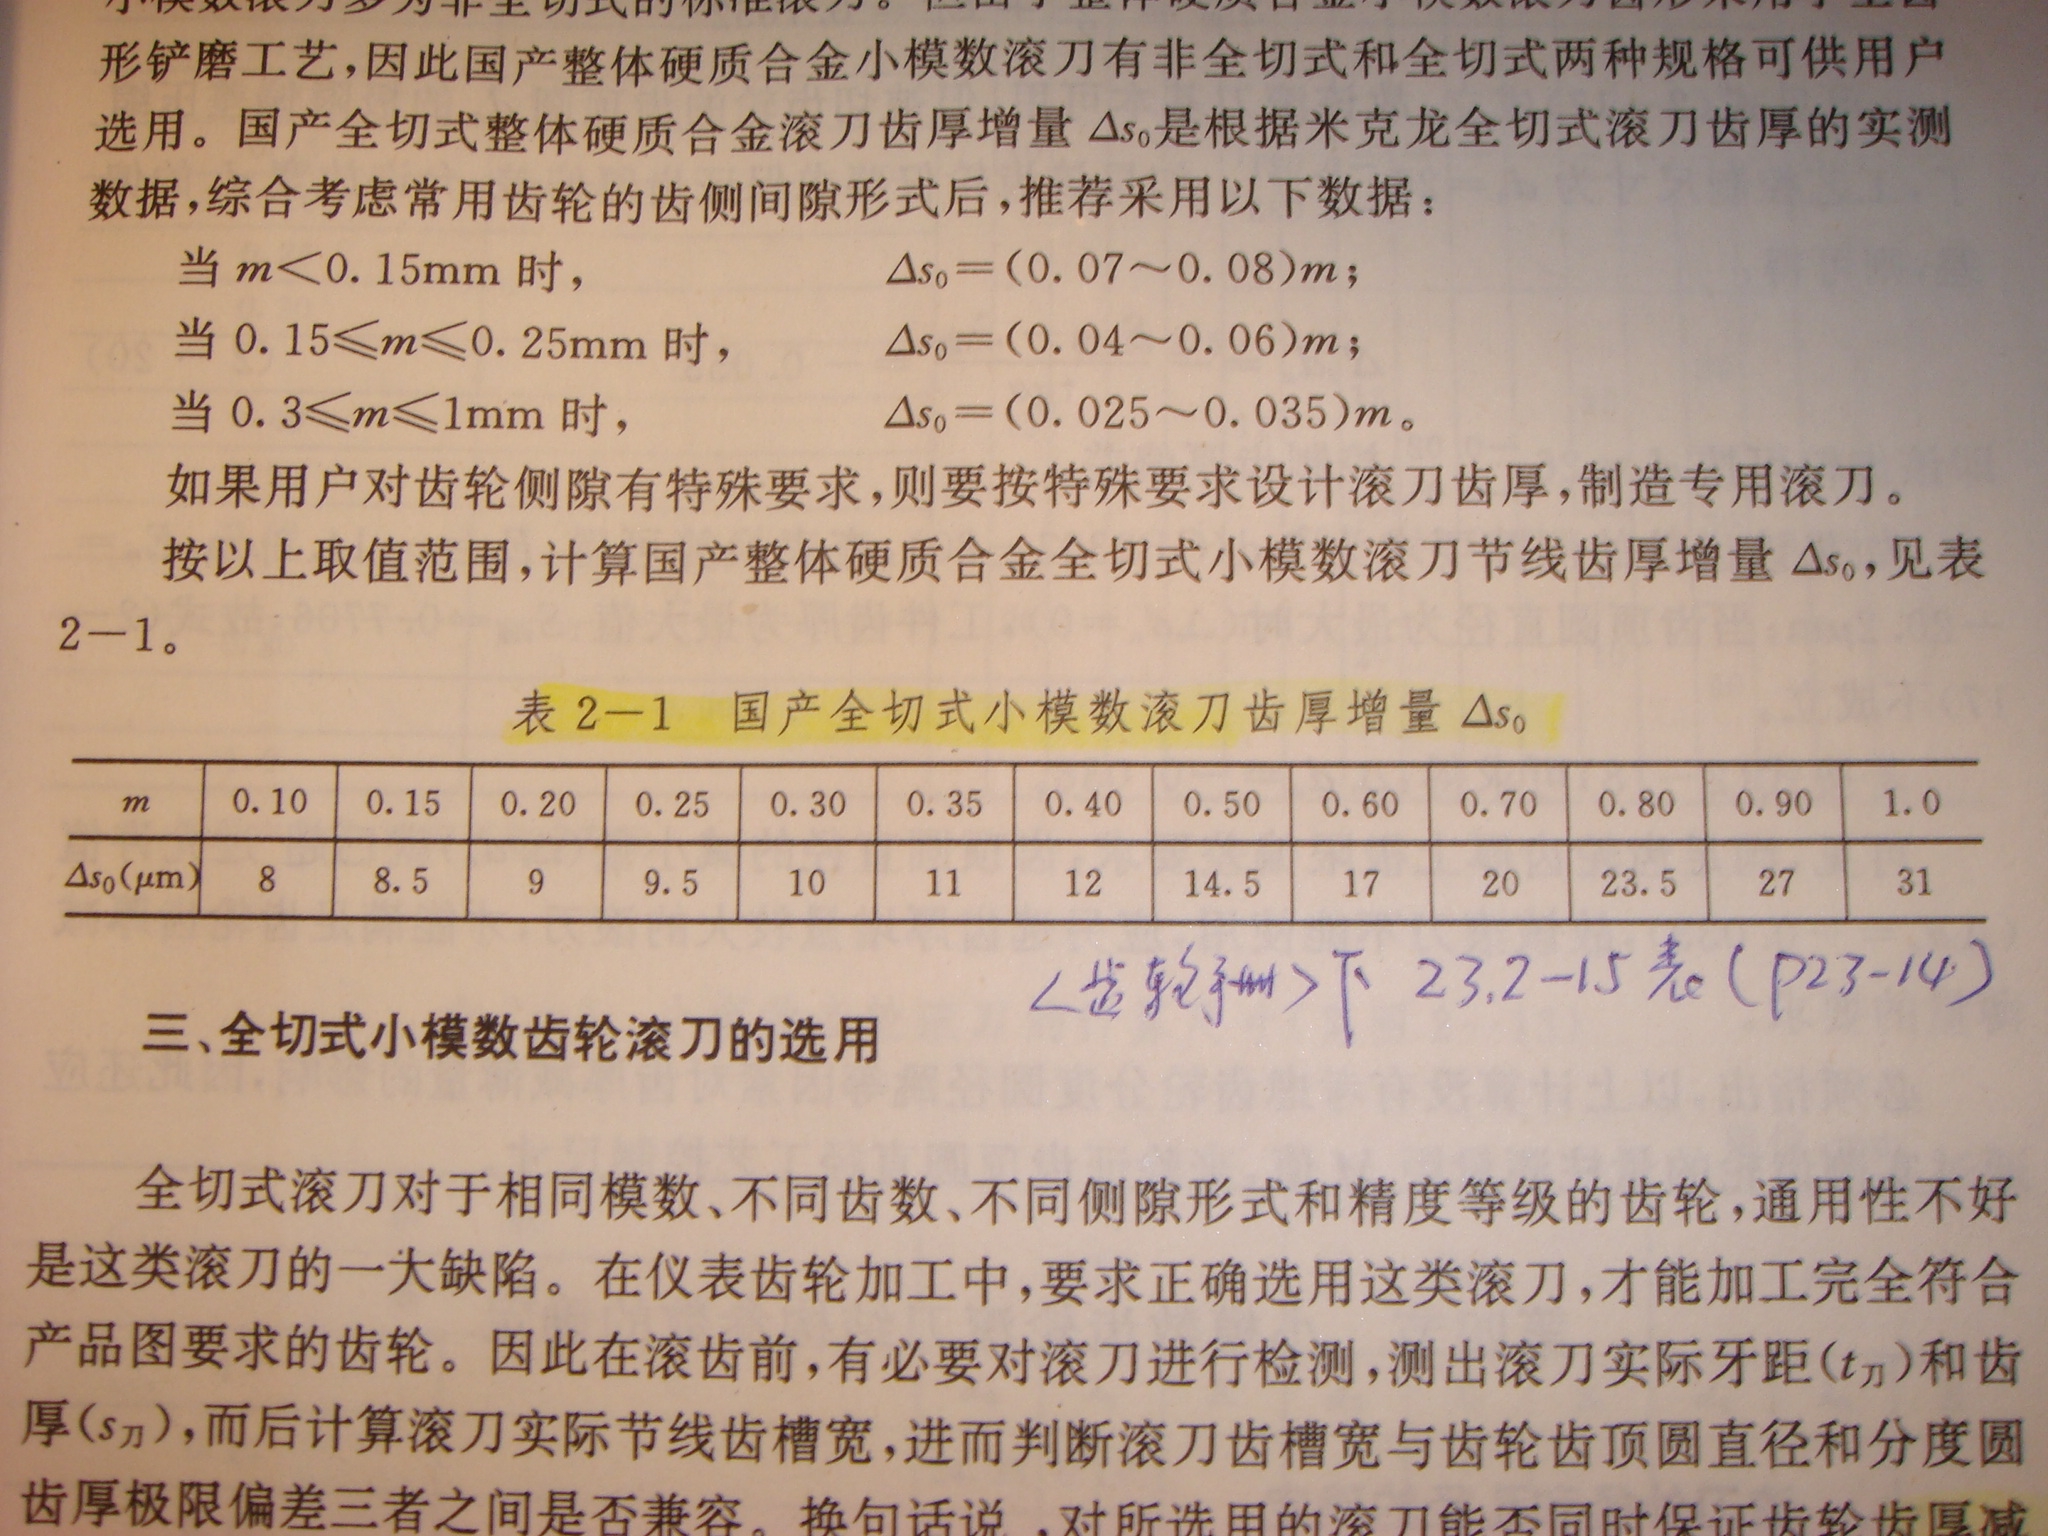 小模数滚刀多为非全切式的标准滚刀。但由于整体硬质合金小模数滚刀齿形采用了全齿
形铲磨工艺,因此国产整体硬质合金小模数滚刀有非全切式和全切式两种规格可供用户
选用。国产全切式整体硬质合金滚刀齿厚增量 Δs₀是根据米克龙全切式滚刀齿厚的实测
数据,综合考虑常用齿轮的齿侧间隙形式后,推荐采用以下数据:
当 m<0.15mm 时, Δs₀=(0.07～0.08)m;
当 0.15≤m≤0.25mm 时, Δs₀=(0.04～0.06)m;
当 0.3≤m≤1mm 时, Δs₀=(0.025～0.035)m。
如果用户对齿轮侧隙有特殊要求,则要按特殊要求设计滚刀齿厚,制造专用滚刀。
按以上取值范围,计算国产整体硬质合金全切式小模数滚刀节线齿厚增量 Δs₀,见表
2—1。
表 2—1 国产全切式小模数滚刀齿厚增量 Δs₀
m 0.10 0.15 0.20 0.25 0.30 0.35 0.40 0.50 0.60 0.70 0.80 0.90 1.0
Δs₀(μm) 8 8.5 9 9.5 10 11 12 14.5 17 20 23.5 27 31
<齿轮手册>下 23.2-15表(P23-14)
三、全切式小模数齿轮滚刀的选用
全切式滚刀对于相同模数、不同齿数、不同侧隙形式和精度等级的齿轮,通用性不好
是这类滚刀的一大缺陷。在仪表齿轮加工中,要求正确选用这类滚刀,才能加工完全符合
产品图要求的齿轮。因此在滚齿前,有必要对滚刀进行检测,测出滚刀实际牙距(t刀)和齿
厚(s刀),而后计算滚刀实际节线齿槽宽,进而判断滚刀齿槽宽与齿轮齿顶圆直径和分度圆
齿厚极限偏差三者之间是否兼容。换句话说,对所选用的滚刀能否同时保证齿轮齿厚减